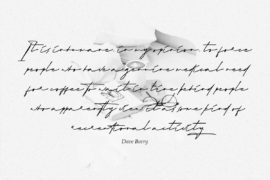 It is inhumane, in my opinion, to force
people who have a genuine medical need
for coffee to wait in line behind people
who apparently view it as some kind of
recreational activity.
Dave Barry